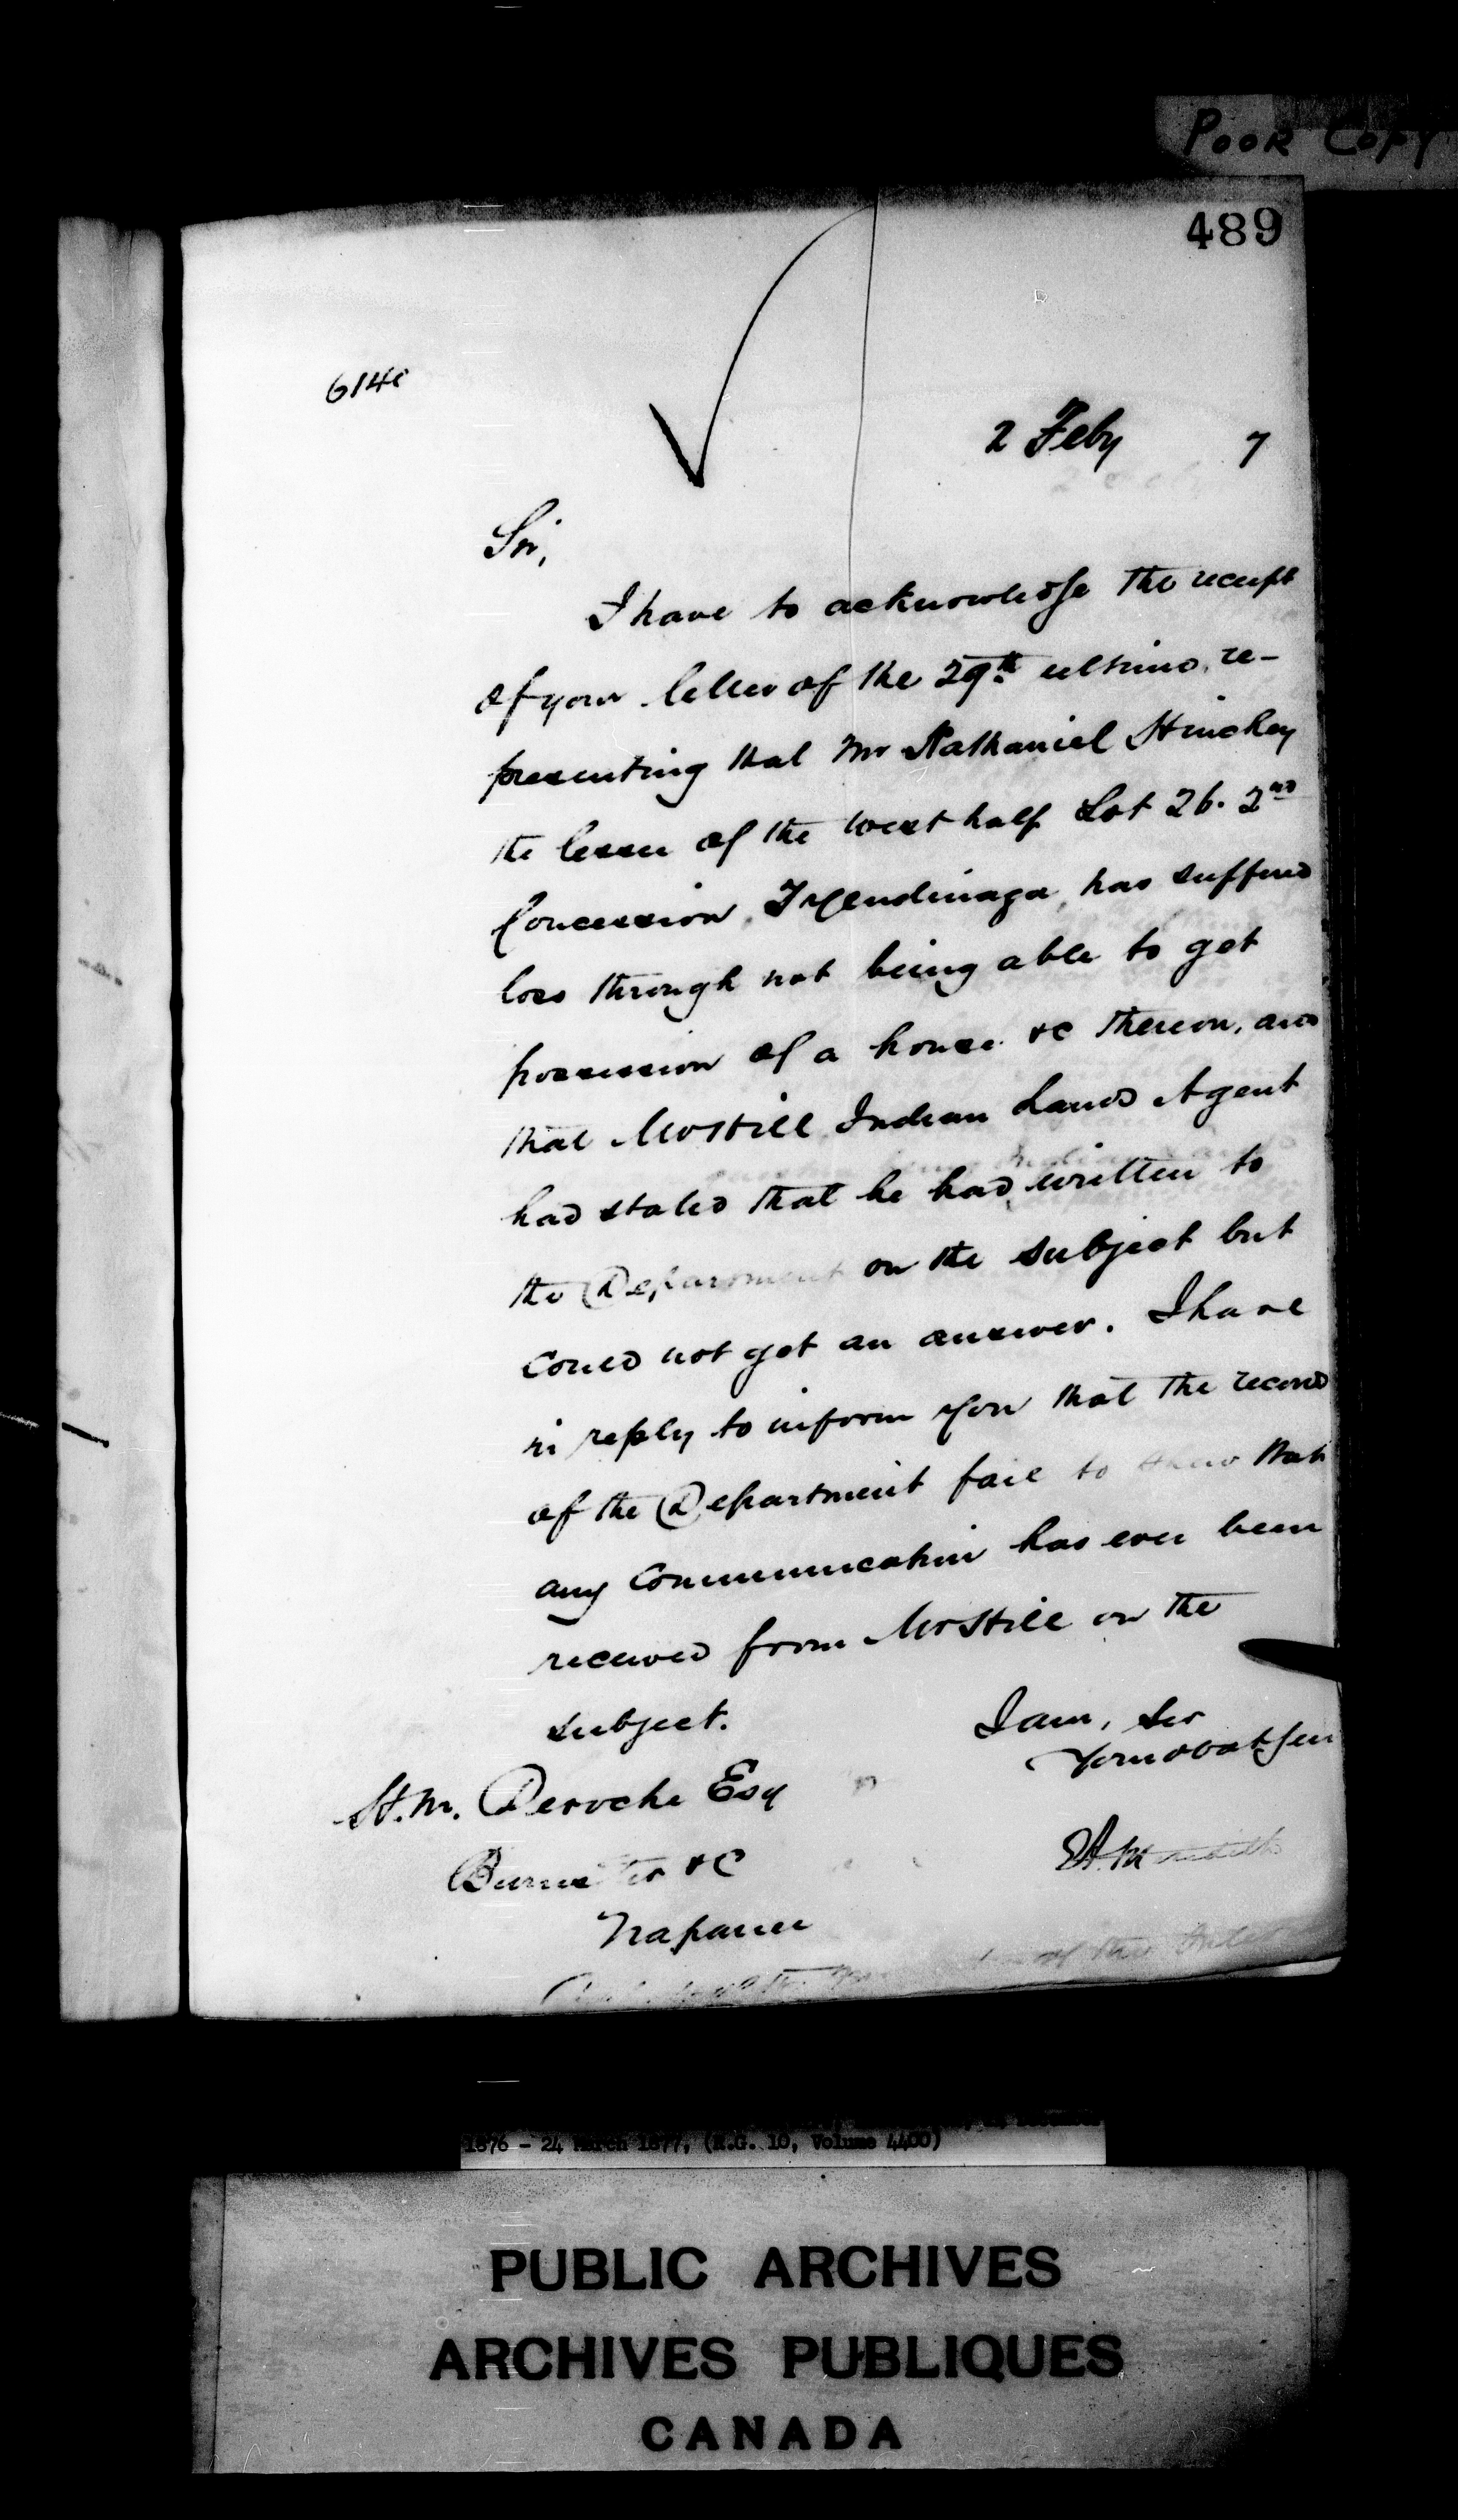 Poor Copy
489
2 Feby 7
Sir,
I have to acknowledge the receipt
of your letter of the 29th ultimo, re-
presenting that Mr Nathaniel Hinchey
the lessee of the West half Lot 26. 2nd
Concession, Tyendinaga, has suffered
loss through not being able to get
possession of a house &c thereon, and
that Mr Hill Indian Lands Agent
had stated that he had written to
the Department on the subject but
could not get an answer. I have
in reply to inform you that the record
of the Department fail to shew that
any communication has ever been
received from Mr Hill on the
subject.
I am, Sir
Your obdt Serv
H. M. Deroche Esq
Barrister &c
E A Meredith
Napanee
of the Inter
1876 - 24 March 1877, (R.G. 10, Volume 4400)
PUBLIC ARCHIVES
ARCHIVES PUBLIQUES
CANADA